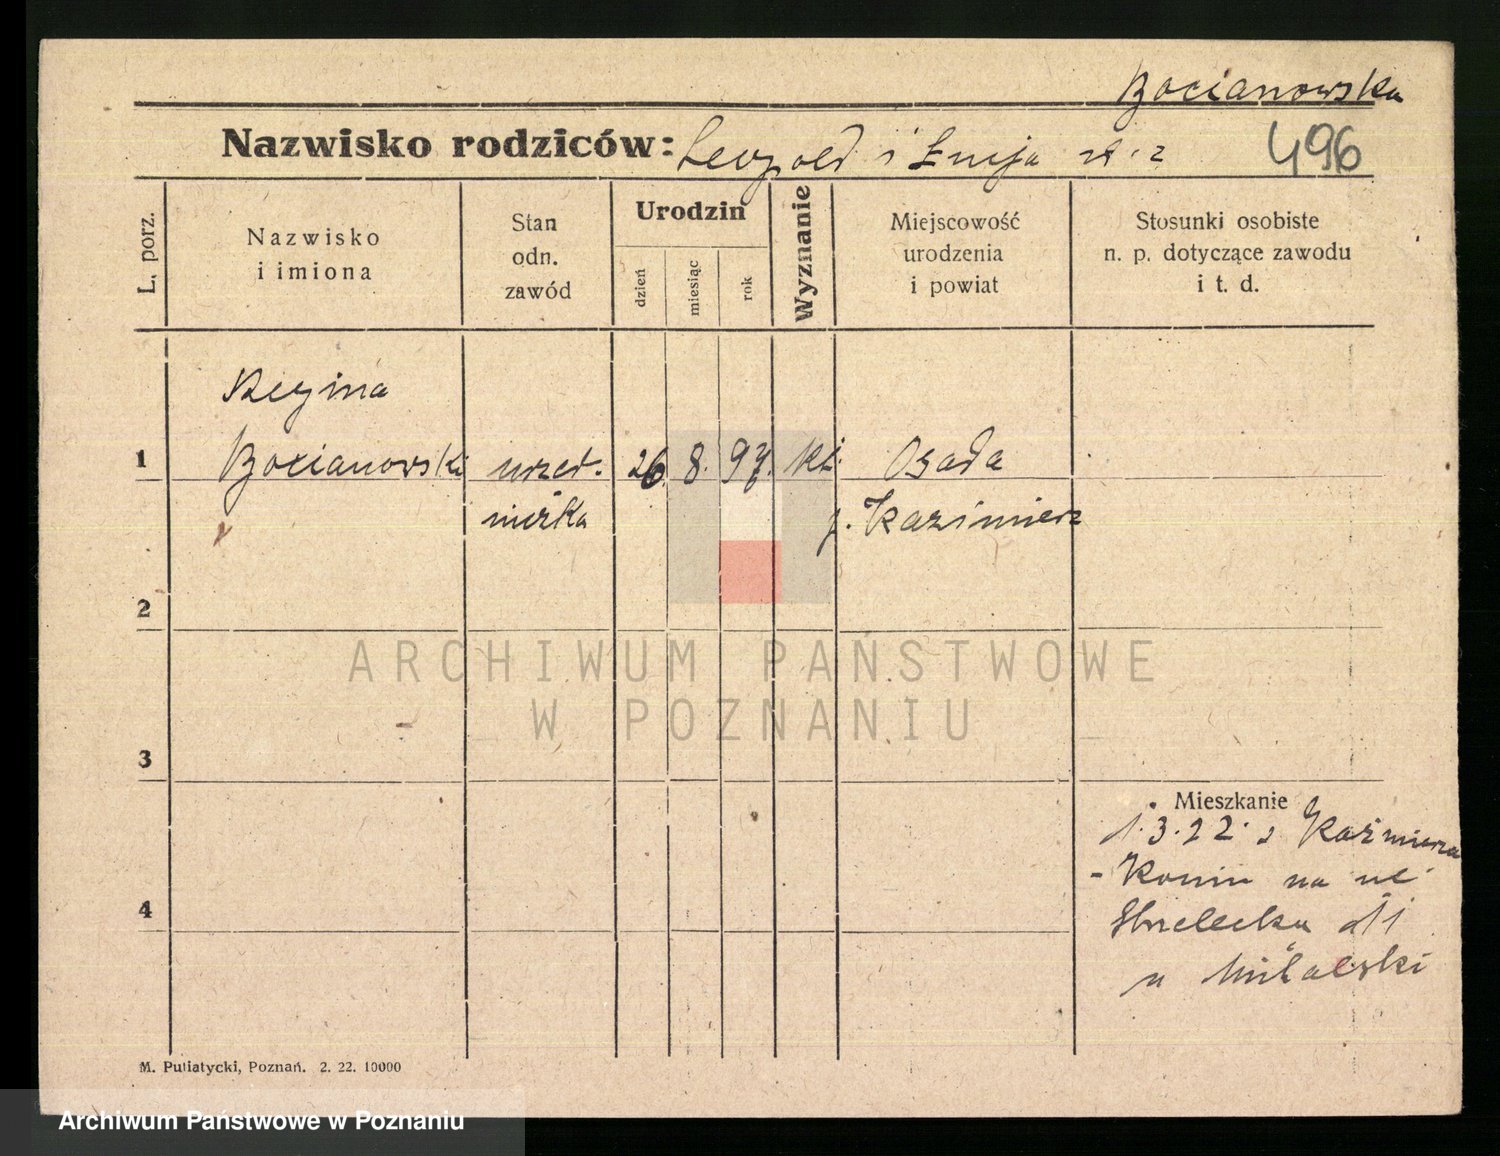 Bocianowska
Nazwisko rodziców: Leopold i Łucja
496
L. porz.
Nazwisko
i imiona
Stan
odn.
zawód
Urodzin
dzień
miesiąc
rok
Wyznanie
Miejscowość
urodzenia
i powiat
Stosunki osobiste
n. p. dotyczące zawodu
i t. d.
Regina
1 Bocianowski urzed. 26. 8. 97. kt. Osada
niczka p. Kazimierz
2
ARCHIWUM PAŃSTWOWE
W POZNANIU
3
Mieszkanie
1.3.22. z Kazimierza
- Konin na ul.
Strzelecka 11
4
u
M. Putiatycki, Poznań. 2. 22. 10000
Archiwum Państwowe w Poznaniu